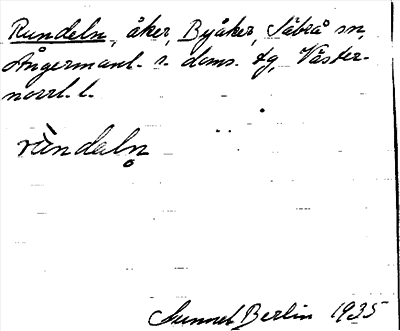 Rundeln, åker, Byåker, Säbrå sn,
Ångermanl. s. doms. tg, Väster-
norrl. l.
rùndaln̥
Gunnel Berlin 1935